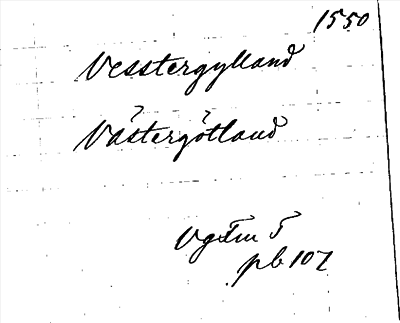 1550
Vesstergylland
Västergötland
VgFm 5
pb 107